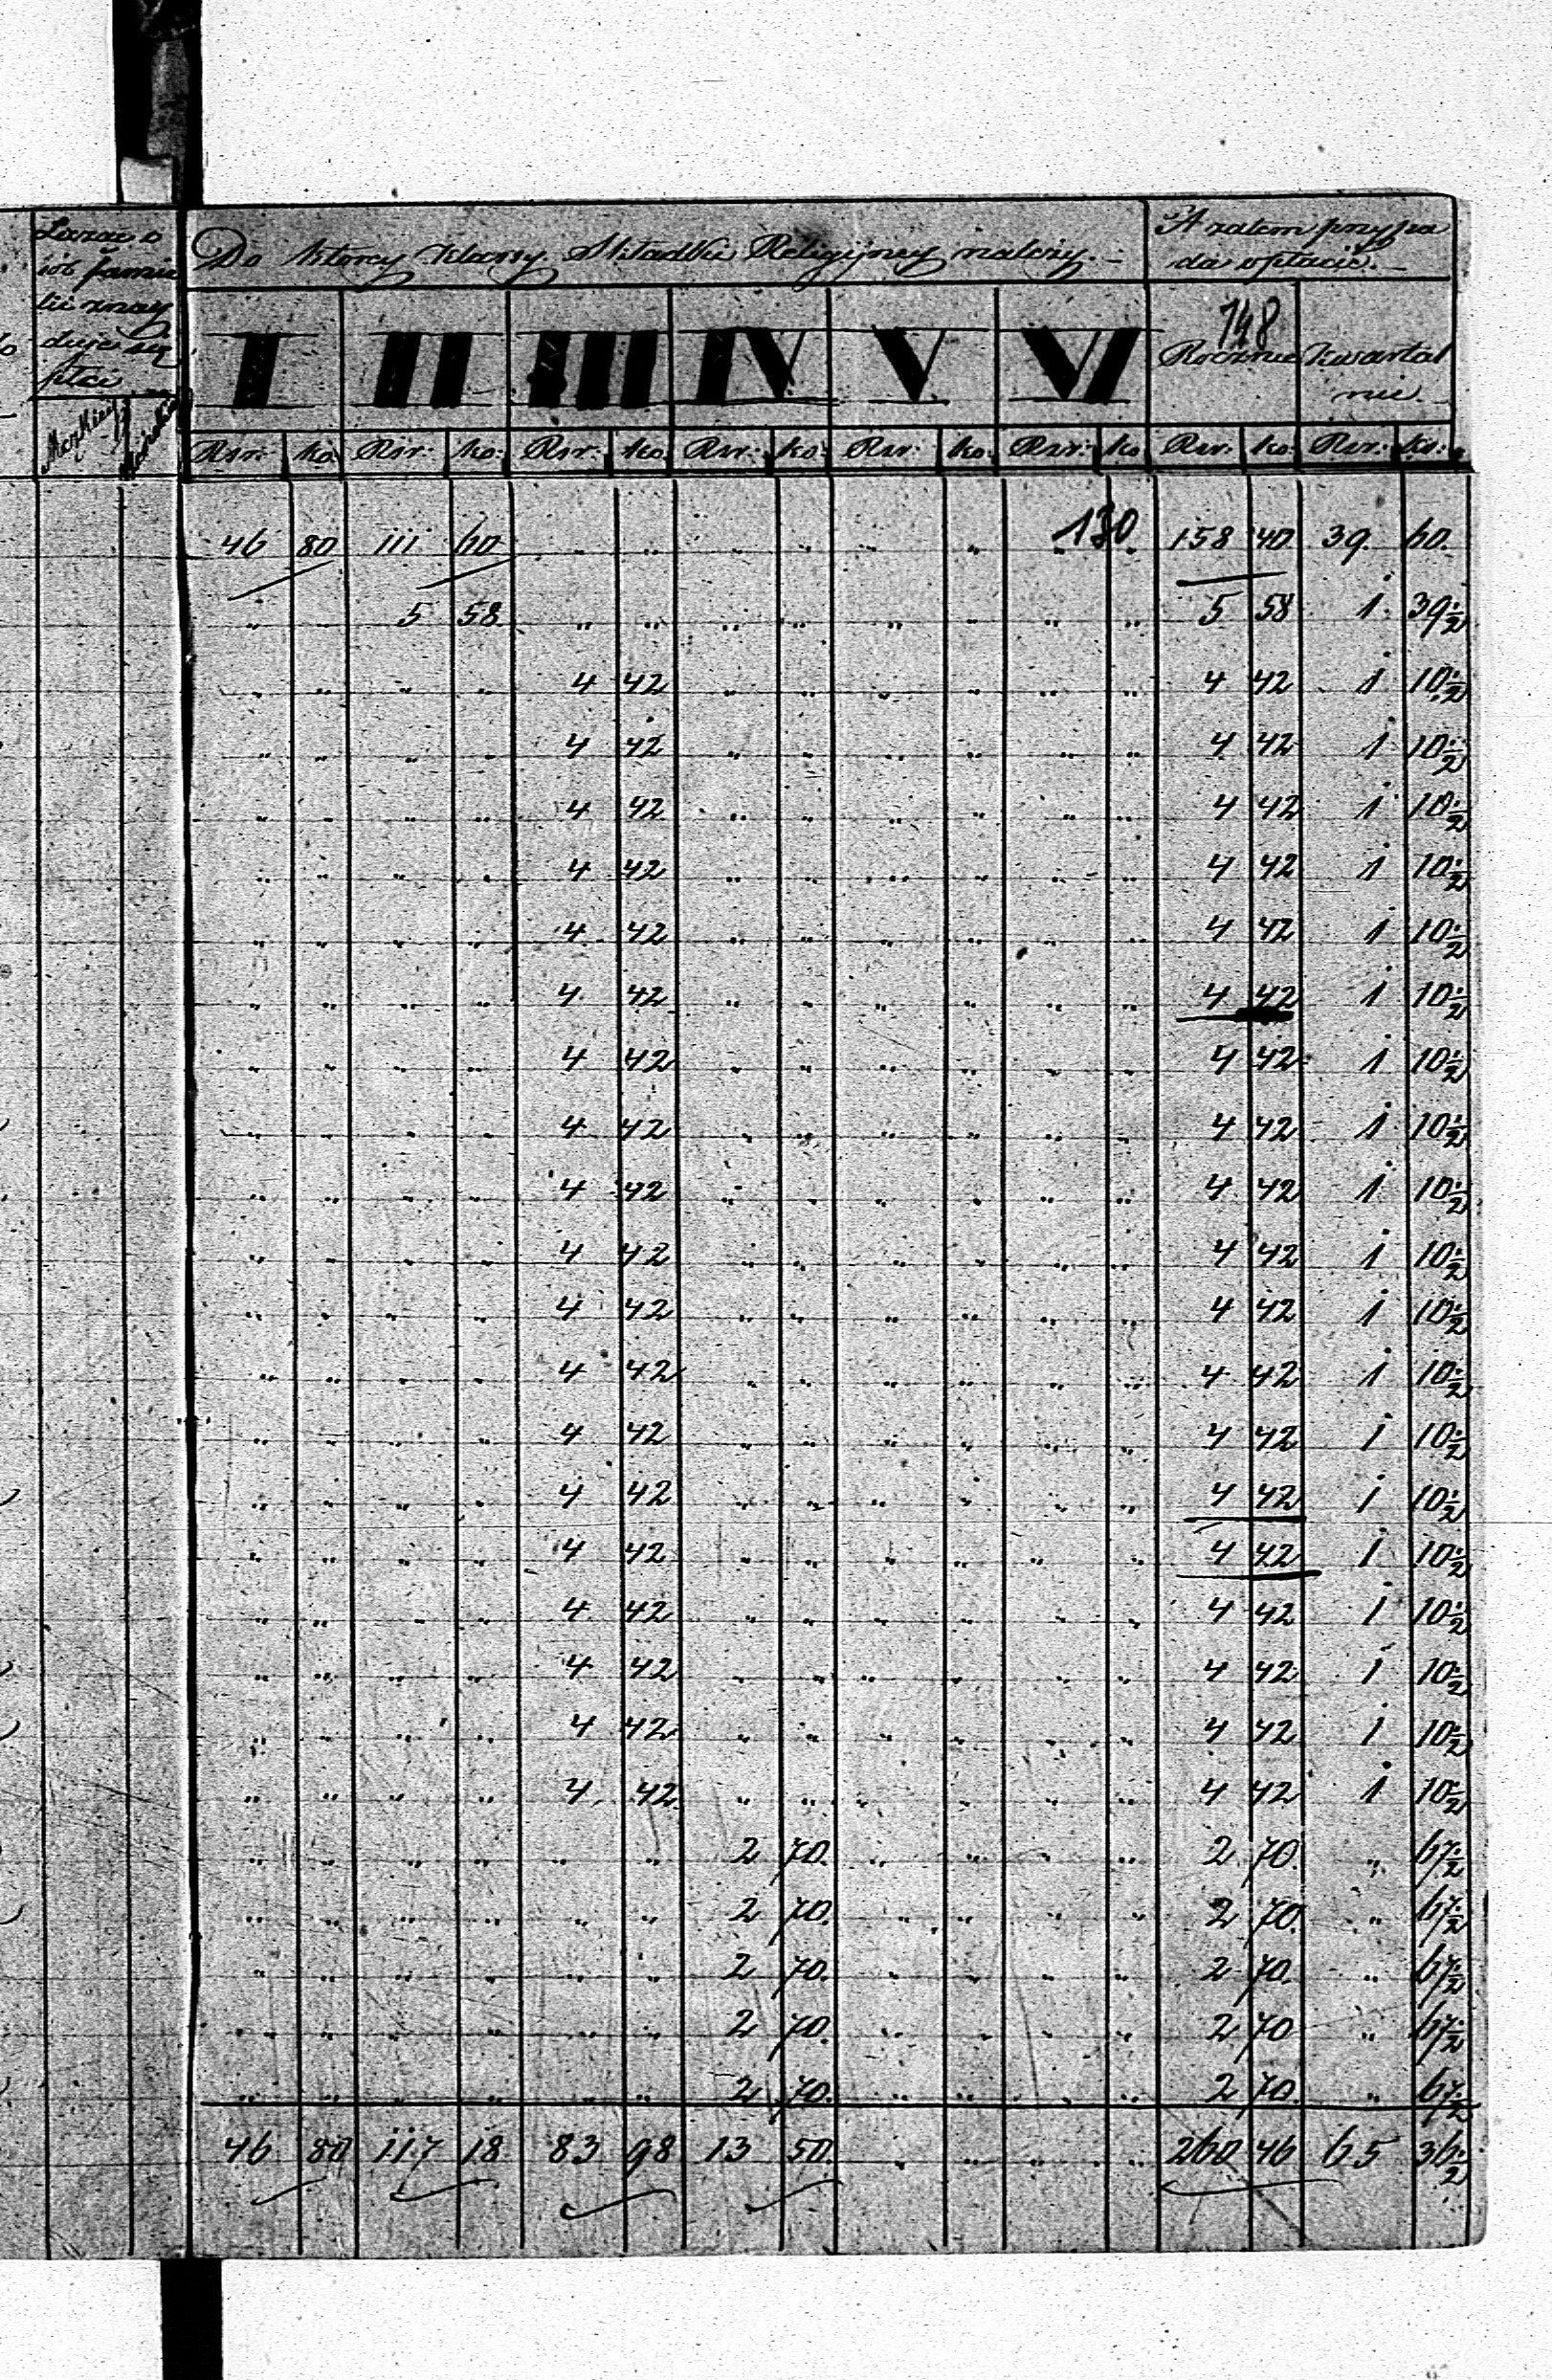 Do ktorey klassy Składki Religijney należy. —
A zatem przypa
da opłacić. —
liczba o
sób famie
lii znay
duje się
płci
Męzkiey Żeńskiey
I II III IV V VI
148
Rocznie kwartal
nie. —
Rsr: ko: Rsr: ko: Rsr: ko: Rsr: ko: Rsr: ko: Rsr: ko: Rsr: ko: Rsr: ko:
130
46 80 111 60 „ „ „ „ „ „ „ „ 158 40 39. 60.
„ „ 5 58 „ „ „ „ „ „ „ „ 5 58 1 39 1/2
„ „ „ „ 4 42 „ „ „ „ „ „ 4 42 1 10 1/2
„ „ „ „ 4 42 „ „ „ „ „ „ 4 42 1 10 1/2
„ „ „ „ 4 42 „ „ „ „ „ „ 4 42 1 10 1/2
„ „ „ „ 4 42 „ „ „ „ „ „ 4 42 1 10 1/2
„ „ „ „ 4 42 „ „ „ „ „ „ 4 42 1 10 1/2
„ „ „ „ 4 42 „ „ „ „ „ „ 4 42 1 10 1/2
„ „ „ „ 4 42 „ „ „ „ „ „ 4 42 1 10 1/2
„ „ „ „ 4 42 „ „ „ „ „ „ 4 42 1 10 1/2
„ „ „ „ 4 42 „ „ „ „ „ „ 4 42 1 10 1/2
„ „ „ „ 4 42 „ „ „ „ „ „ 4 42 1 10 1/2
„ „ „ „ 4 42 „ „ „ „ „ „ 4 42 1 10 1/2
„ „ „ „ 4 42 „ „ „ „ „ „ 4 42 1 10 1/2
„ „ „ „ 4 42 „ „ „ „ „ „ 4 42 1 10 1/2
„ „ „ „ 4 42 „ „ „ „ „ „ 4 42 1 10 1/2
„ „ „ „ 4 42 „ „ „ „ „ „ 4 42 1 10 1/2
„ „ „ „ 4 42 „ „ „ „ „ „ 4 42 1 10 1/2
„ „ „ „ 4 42 „ „ „ „ „ „ 4 42 1 10 1/2
„ „ „ „ 4 42 „ „ „ „ „ „ 4 42 1 10 1/2
„ „ „ „ 4 42 „ „ „ „ „ „ 4 42 1 10 1/2
„ „ „ „ „ „ 2 70. „ „ „ „ 2 70. „ 67 1/2
„ „ „ „ „ „ 2 70. „ „ „ „ 2 70. „ 67 1/2
„ „ „ „ „ „ 2 70. „ „ „ „ 2 70. „ 67 1/2
„ „ „ „ „ „ 2 70. „ „ „ „ 2 70 „ 67 1/2
„ „ „ „ „ „ 2 70. „ „ „ „ 2 70. „ 67 1/2
46 80 117 18 83 98 13 50. „ „ „ „ 260 46 65 36 1/2